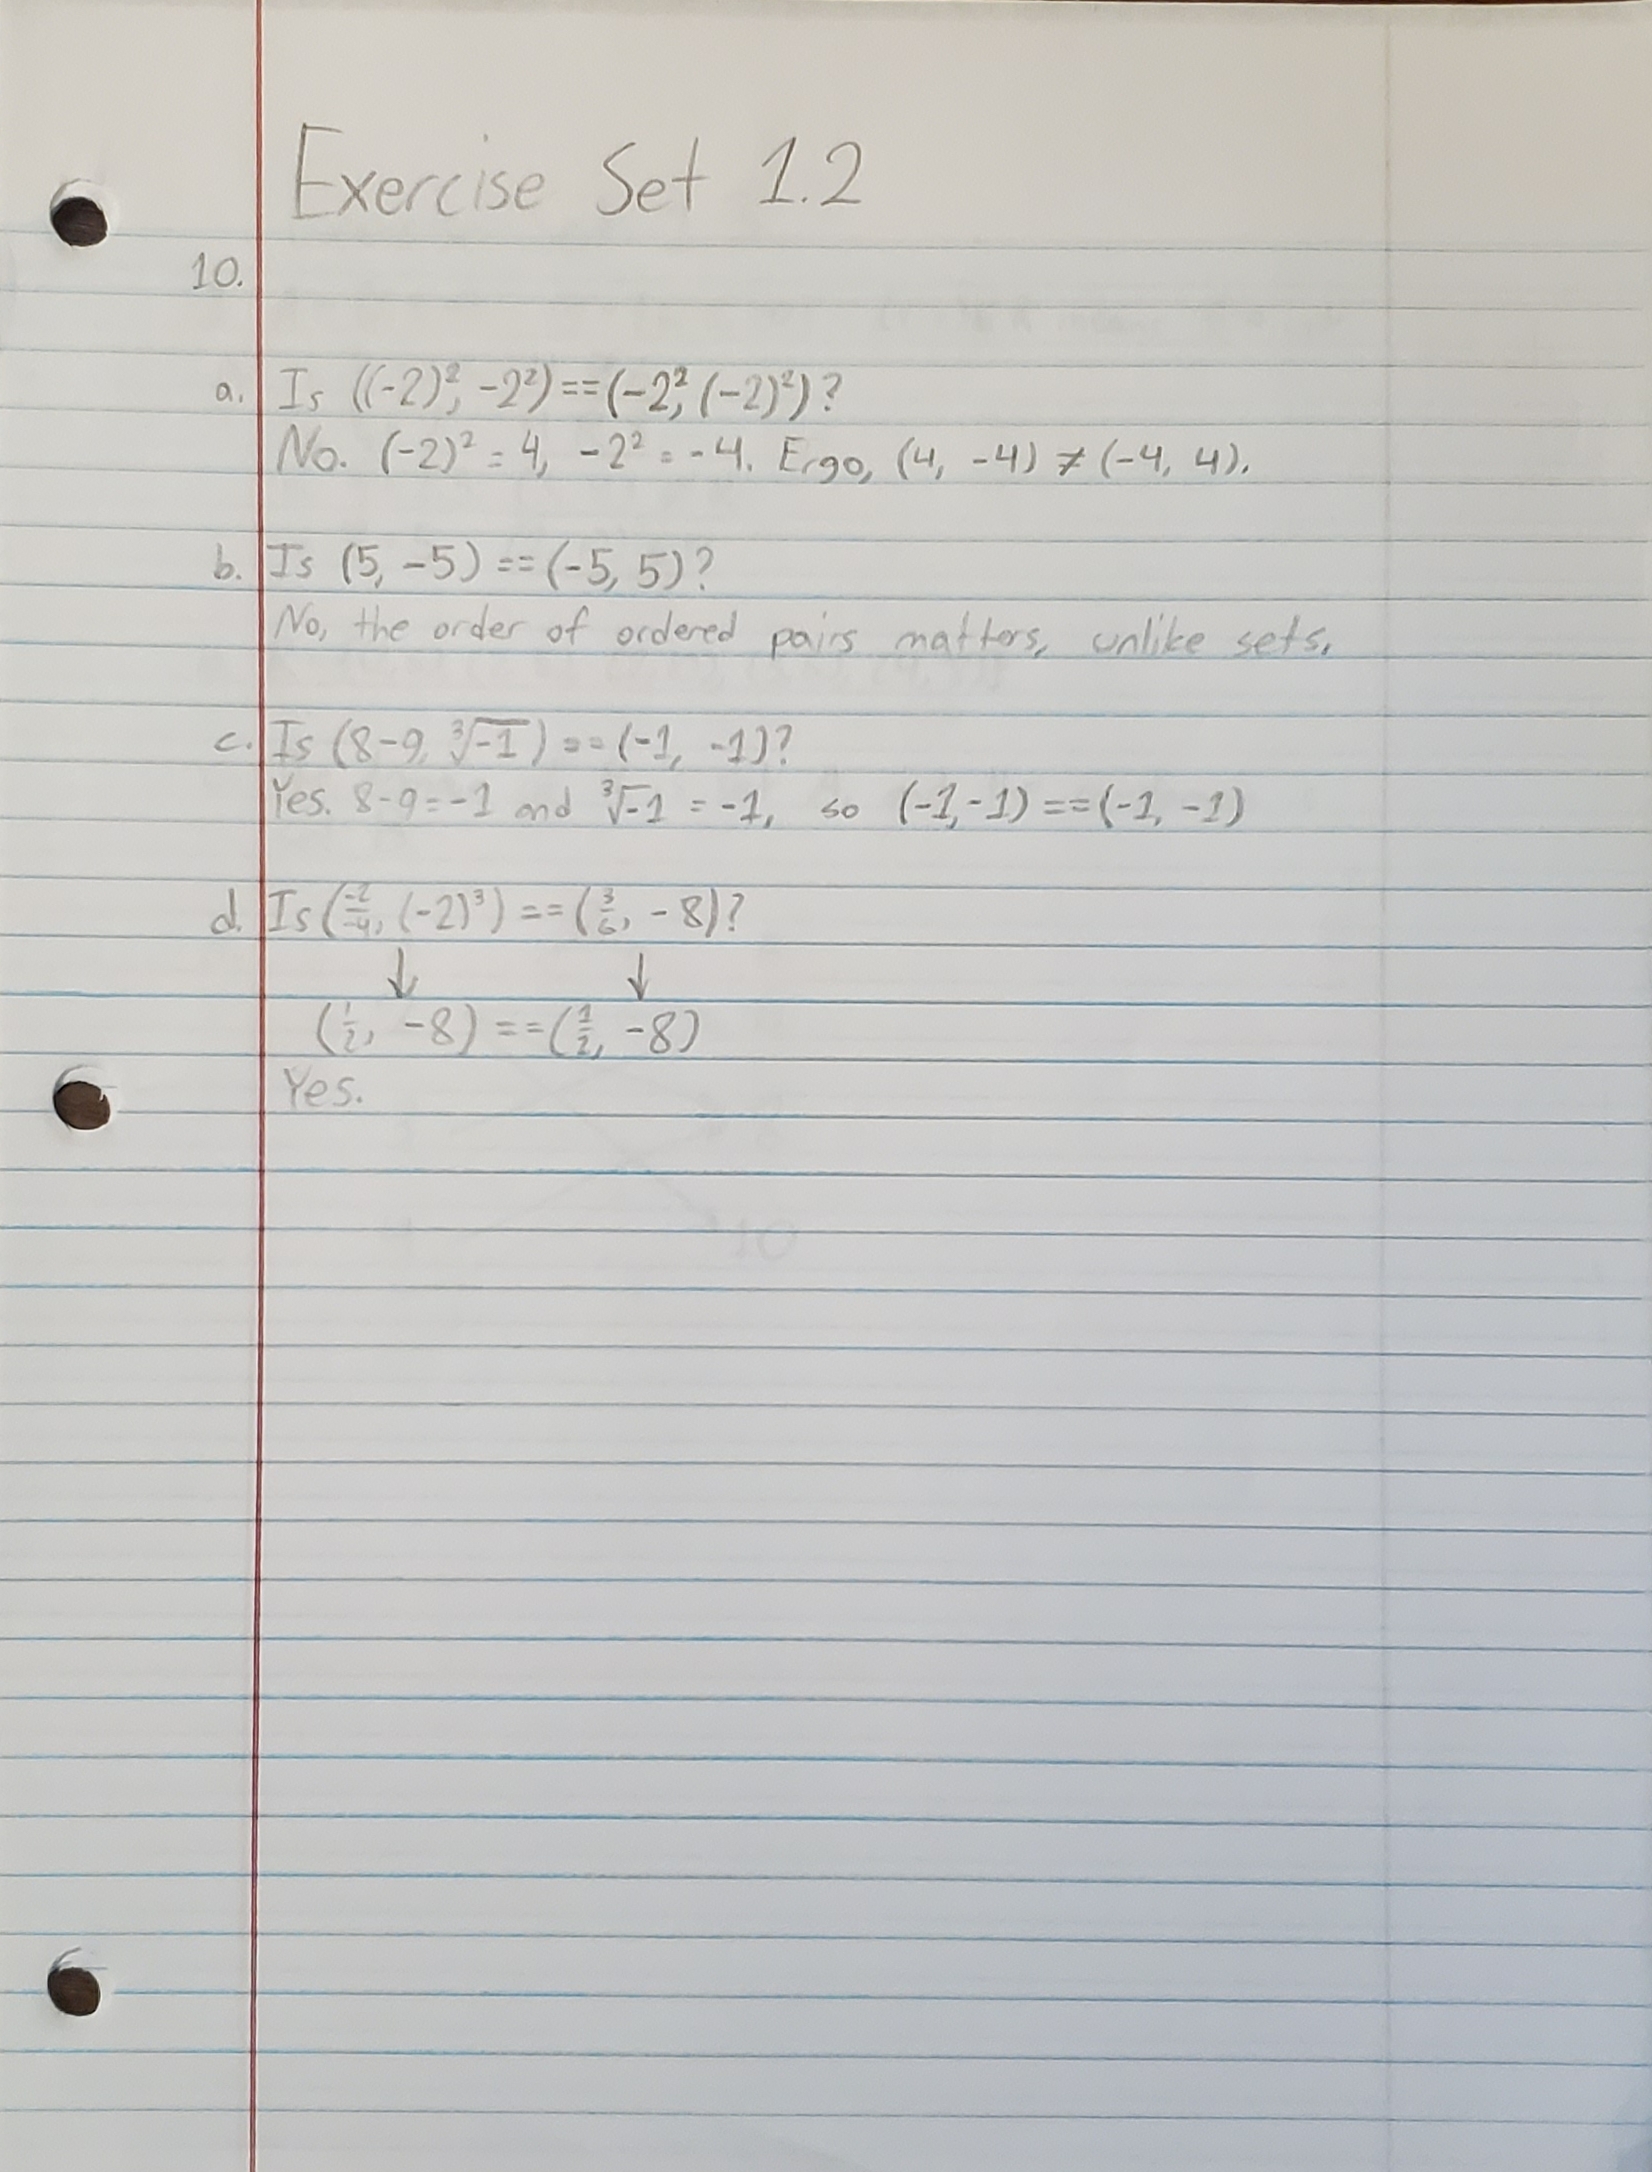 Exercise Set 1.2
10.
a. Is ((-2)², -2²) == (-2², (-2)²)?
No. (-2)² = 4, -2² = -4. Ergo, (4, -4) ≠ (-4, 4).
b. Is (5, -5) == (-5, 5)?
No, the order of ordered pairs matters, unlike sets.
c. Is (8-9, ³√-1) == (-1, -1)?
Yes. 8-9=-1 and ³√-1 = -1, so (-1,-1) == (-1, -1)
d. Is (-2/-4, (-2)³) == (3/6, -8)?
↓ ↓
(1/2, -8) == (1/2, -8)
Yes.